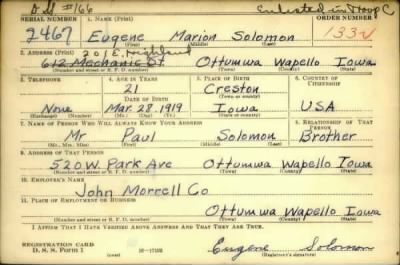 D.S #166 Enlisted in Troop C
SERIAL NUMBER 1. Name (Print) ORDER NUMBER
2467 Eugene Marion Solomon 133V
(First) (Middle) (Last)
2. Address (Print) 201 E. Highland
612 Mechanic St Ottumwa Wapello Iowa
(Number and street or R. F. D. number) (Town) (County) (State)
3. Telephone 4. Age in Years 5. Place of Birth 6. Country of Citizenship
21 Creston
Date of Birth (Town or county)
None Mar. 28, 1919 Iowa USA
(Exchange) (No.) (Mo.) (Day) (Yr.) (State or country)
7. Name of Person Who Will Always Know Your Address 8. Relationship of That Person
Mr Paul Solomon Brother
(Mr., Mrs., Miss) (First) (Middle) (Last)
9. Address of That Person
520 W. Park Ave Ottumwa Wapello Iowa
(Number and street or R. F. D. number) (Town) (County) (State)
10. Employer's Name
John Morrell Co
11. Place of Employment or Business
Ottumwa Wapello Iowa
(Number and street or R. F. D. number) (Town) (County) (State)
I Affirm That I Have Verified Above Answers and That They Are True.
REGISTRATION CARD
D. S. S. Form 1 Eugene Solomon
(Registrant's signature)